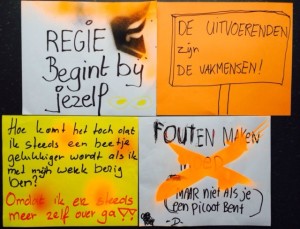 REGIE
Begint by
jezelf
DE UITVOERENDEN
zijn
DE VAKMENSEN!
Hoe komt het toch dat
ik steeds een beetje
gelukkiger wordt als ik
met mijn werk bezig
ben?
Omdat ik er steeds
meer zelf over ga!!
FOUTEN MAKEN
(MAAR niet Als je
een Piloot Bent)